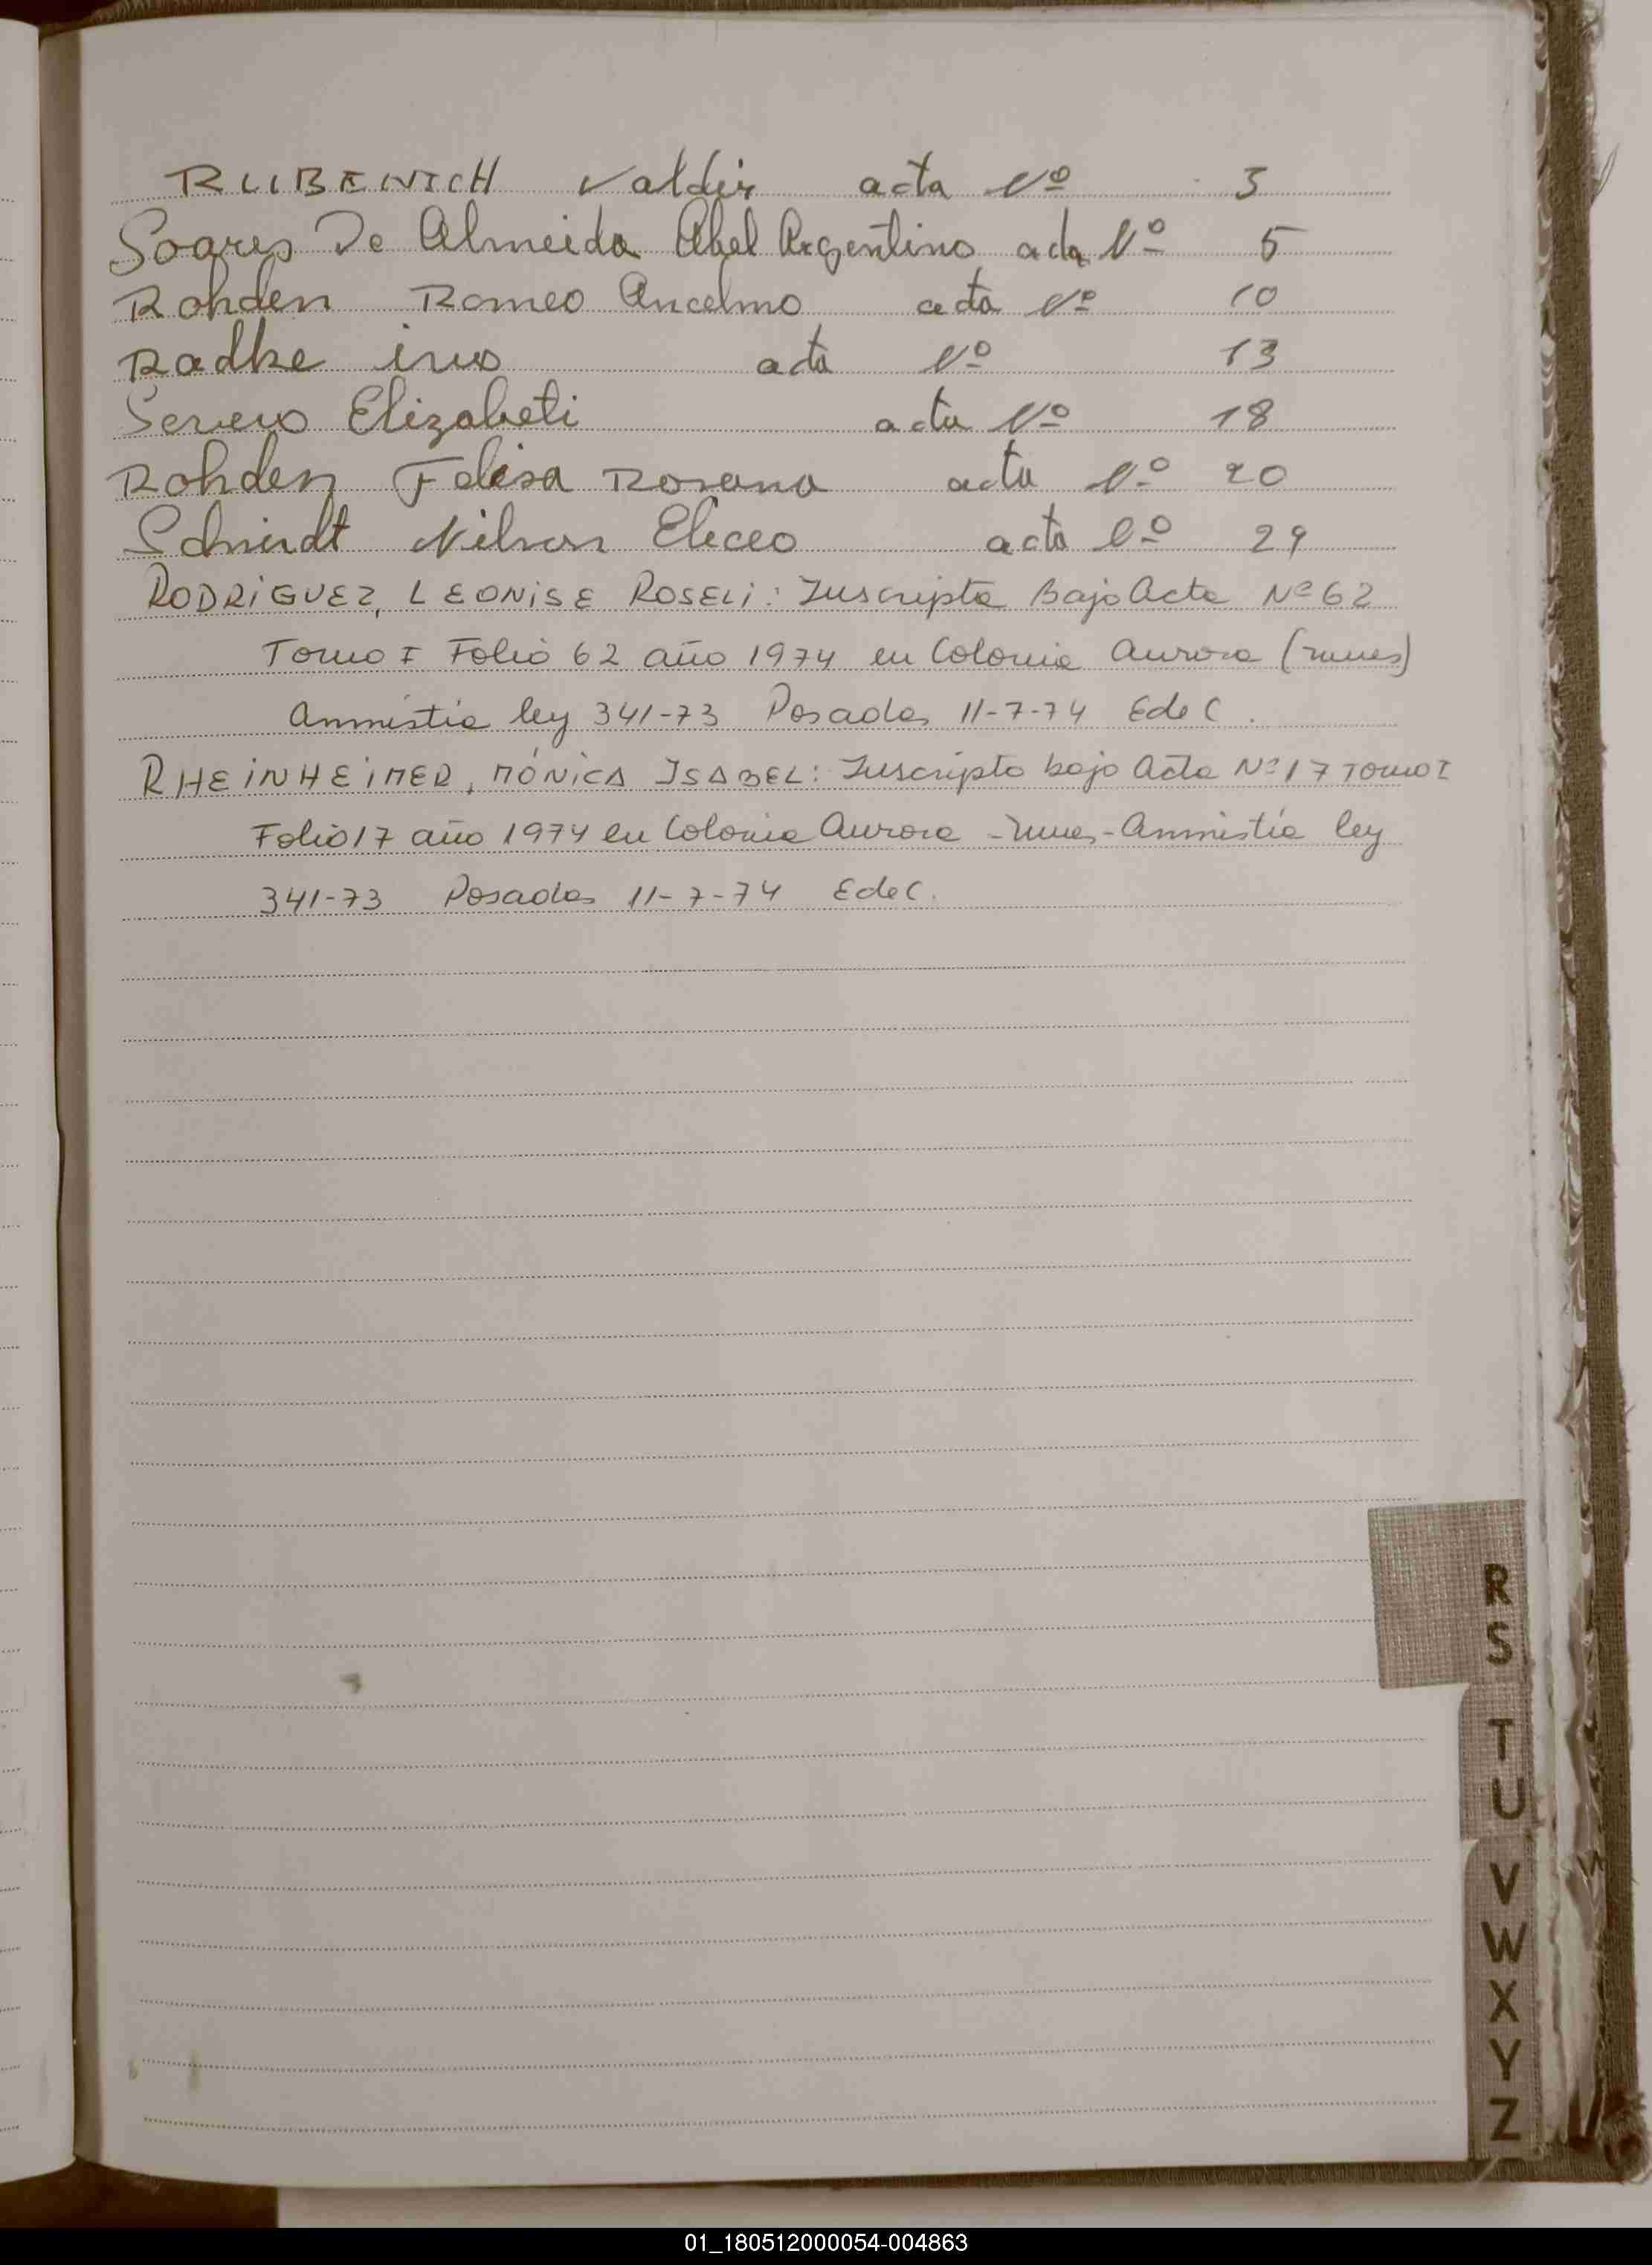 RUBENICH Valdir acta Nº 3
Soares De Almeida Abel Argentino acta Nº 5
Rohden Romeo Ancelmo acta Nº 10
Radke ivo acta Nº 13
Severo Elizabeti acta Nº 18
Rohden Felisa Rosana acta Nº 20
Schmidt Nilson Eliceo acta Nº 29
RODRIGUEZ, LEONISE ROSELI: Inscripta Bajo Acta Nº 62
Tomo I Folio 62 año 1974 en Colonia Aurora (mnes)
Amnistia ley 341-73 Posadas 11-7-74 EdeC.
RHEINHEIMER, MÓNICA ISABEL: Inscripta bajo Acta Nº 17 Tomo I
Folio 17 año 1974 en Colonia Aurora - mnes - Amnistía ley
341-73 Posadas 11-7-74 EdeC.
R
S
T
U
V
W
X
Y
Z
01_180512000054-004863